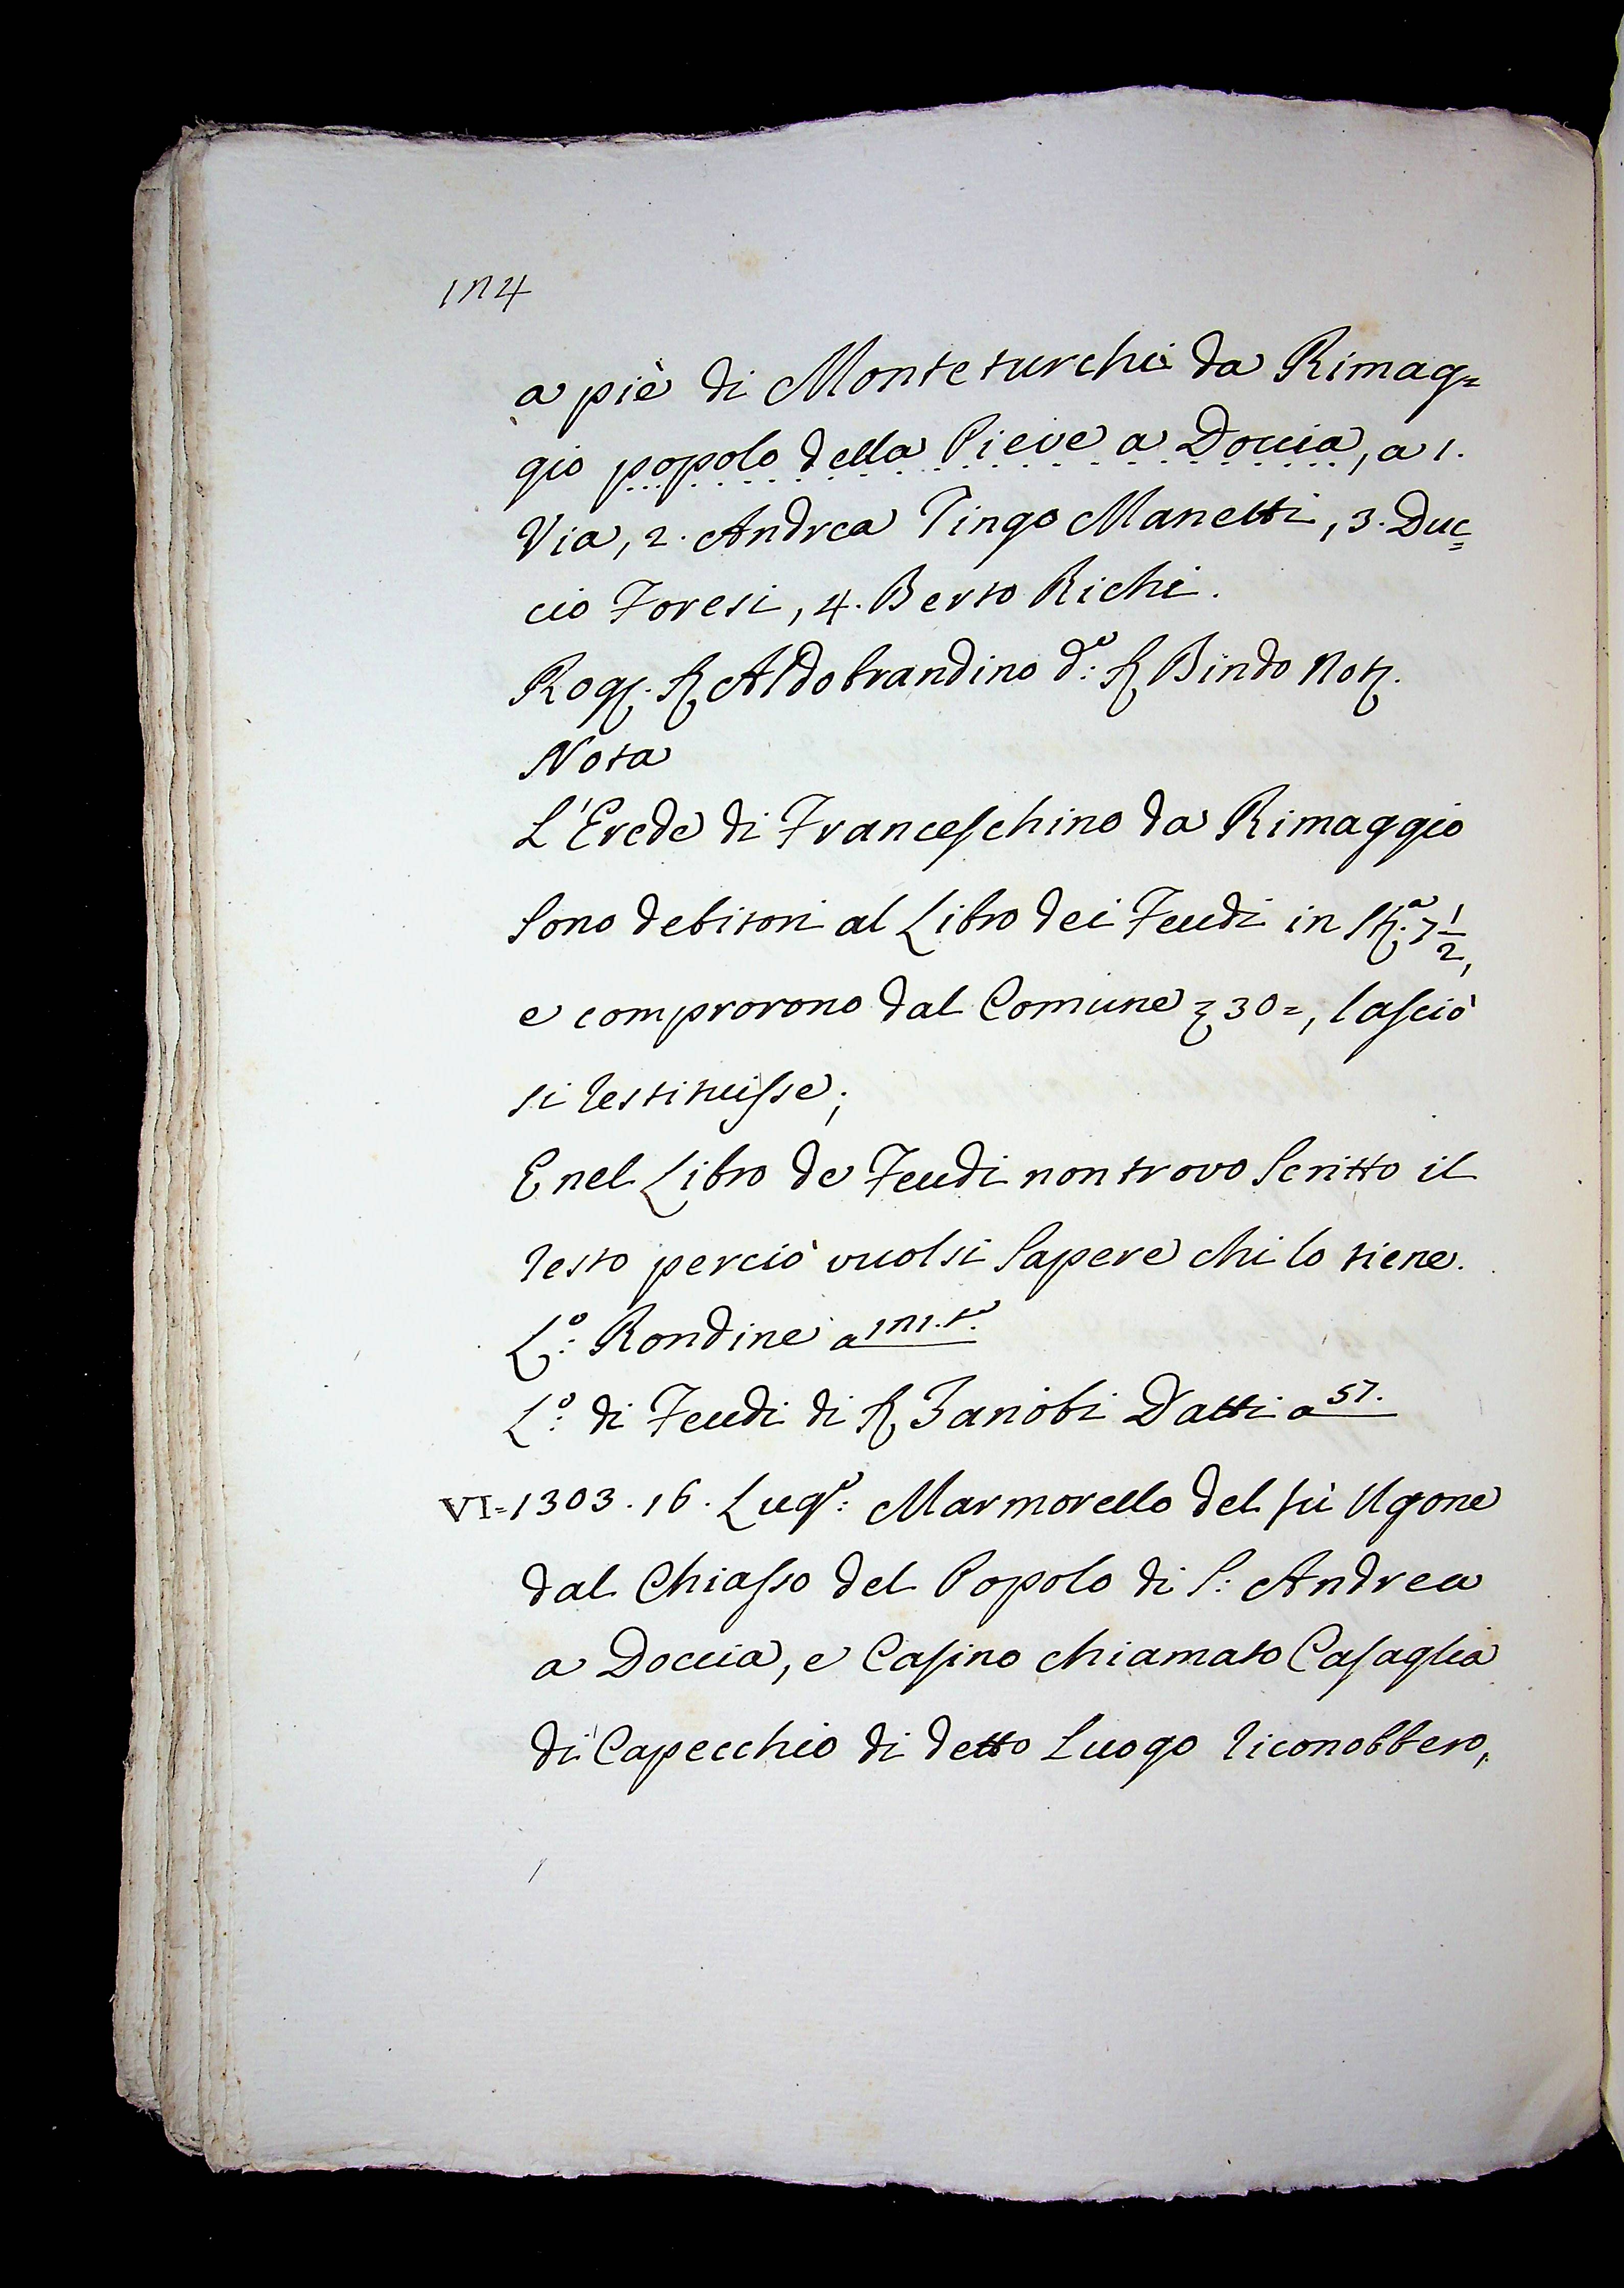 174
a piè di Monteturchi da Rimag=
gio popolo della Pieve a Doccia, a 1.
Via, 2. Andrea Tingo Manetti, 3. Duc=
cio Foresi, 4. Berto Richi.
Rog. Aldobrandino d.o Bindo Not.
Nota
L'Erede di Franceschino da Rimaggio
sono debitori al Libro dei Feudi in St.a 7 1/2,
e comprorono dal Comune 30=, lasciò
si restituisse;
E nel Libro de Feudi non trovo scritto il
resto perciò vuolsi sapere chi lo tiene.
L.o: Rondine a 171.t.
L.o: di Feudi di Zanobi Datti a 57.
VI=1303. 16. Lug.o: Marmorello del fù Ugone
dal Chiasso del Popolo di S: Andrea
a Doccia, e Casino chiamato Casaglia
di Capecchio di detto Luogo riconobbero,